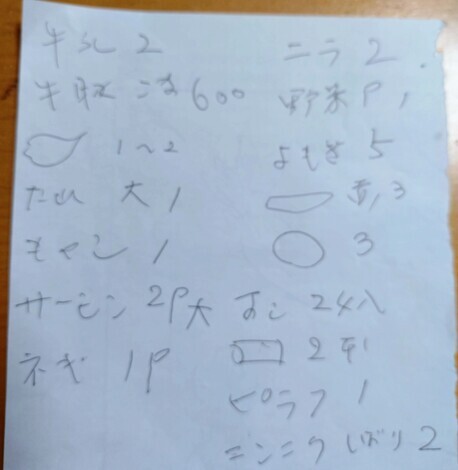 牛乳 2
牛 こま 600
1〜2
大 1
キャベ 1
サーモン 2P大
ネギ 1P
ニラ 2
野菜P 1
よもぎ 5
黄 3
3
すし 24入
2
ピラフ 1
ニンニク しぼり 2